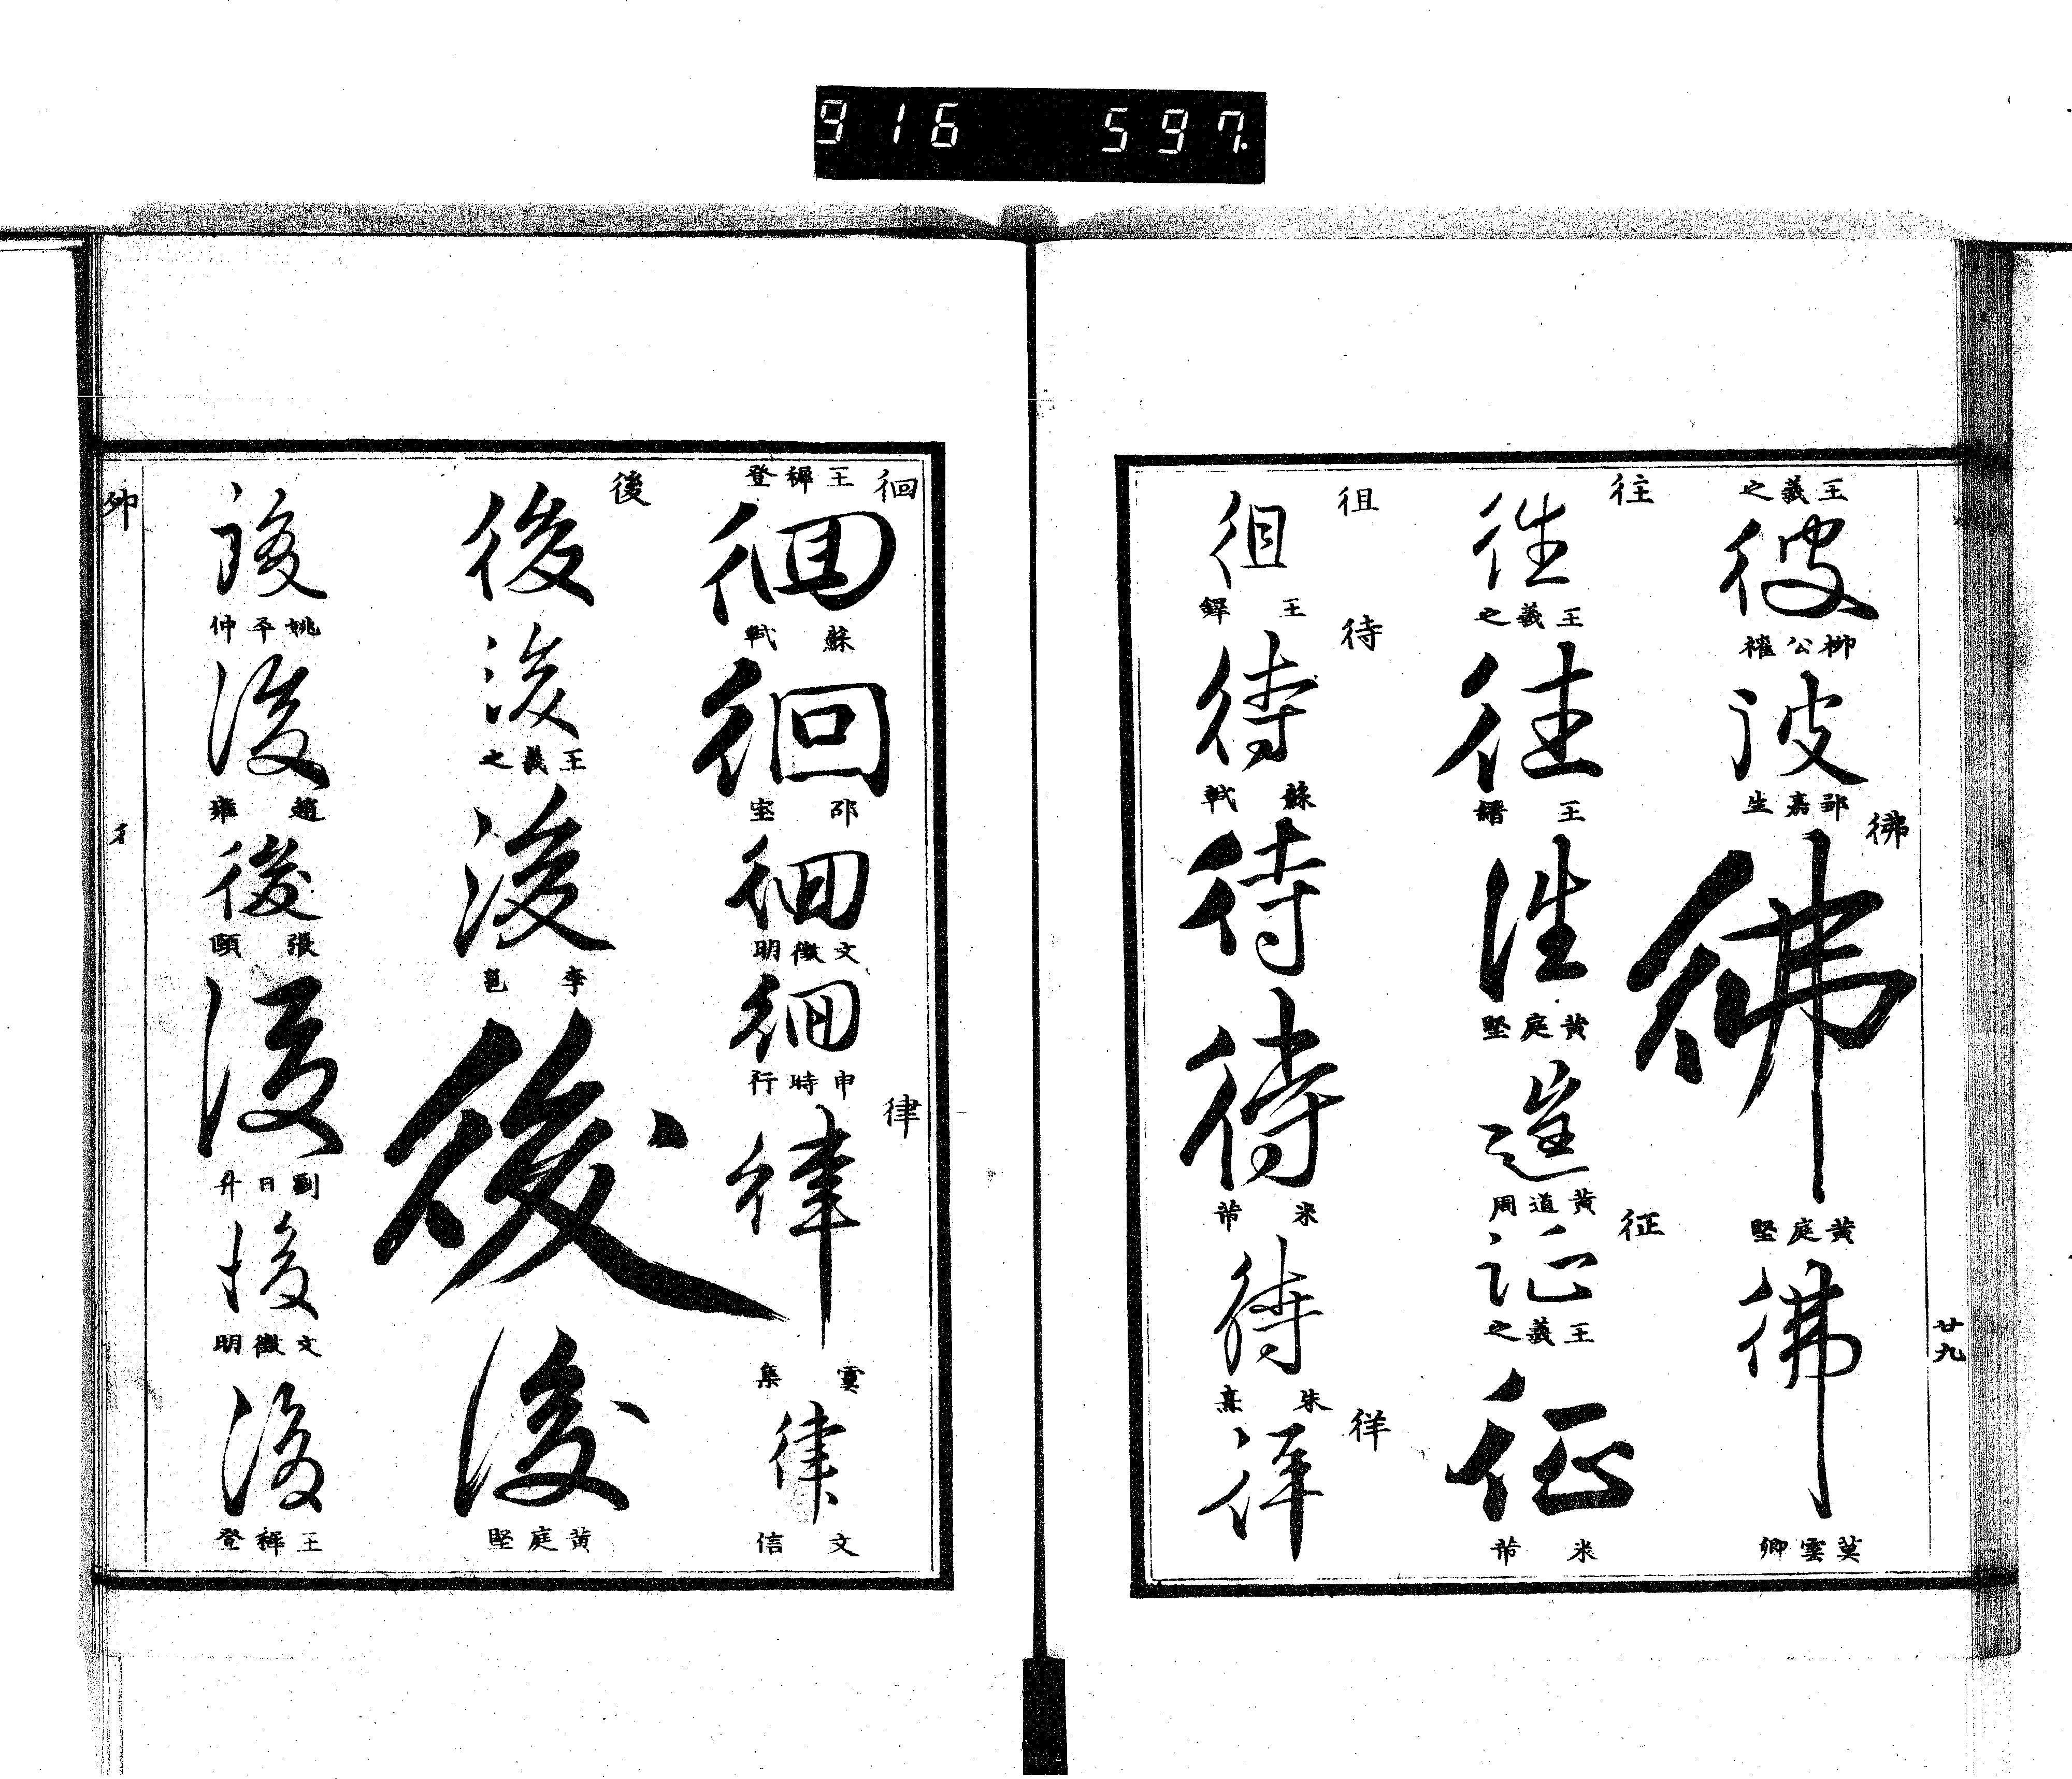 916 597
王羲之
彼
柳公權
彼
彿
彿
黄庭堅
彿
莫雲卿
廿九
往
往
王羲之
往
往
黄庭堅
往
黄道周
征
征
王羲之
征
米芾
徂
徂
王鐸
待
待
蘇軾
待
待
米芾
待
朱熹
徉
徉
徊
王穉登
徊
蘇軾
徊
邵宝
徊
文徴明
徊
申時行
律
律
虞集
律
文信
後
後
後
王羲之
後
李邕
後
後
黄庭堅
後
姚平仲
後
趙雍
後
張頤
後
劉日升
後
文徴明
後
王穉登
卯
彳